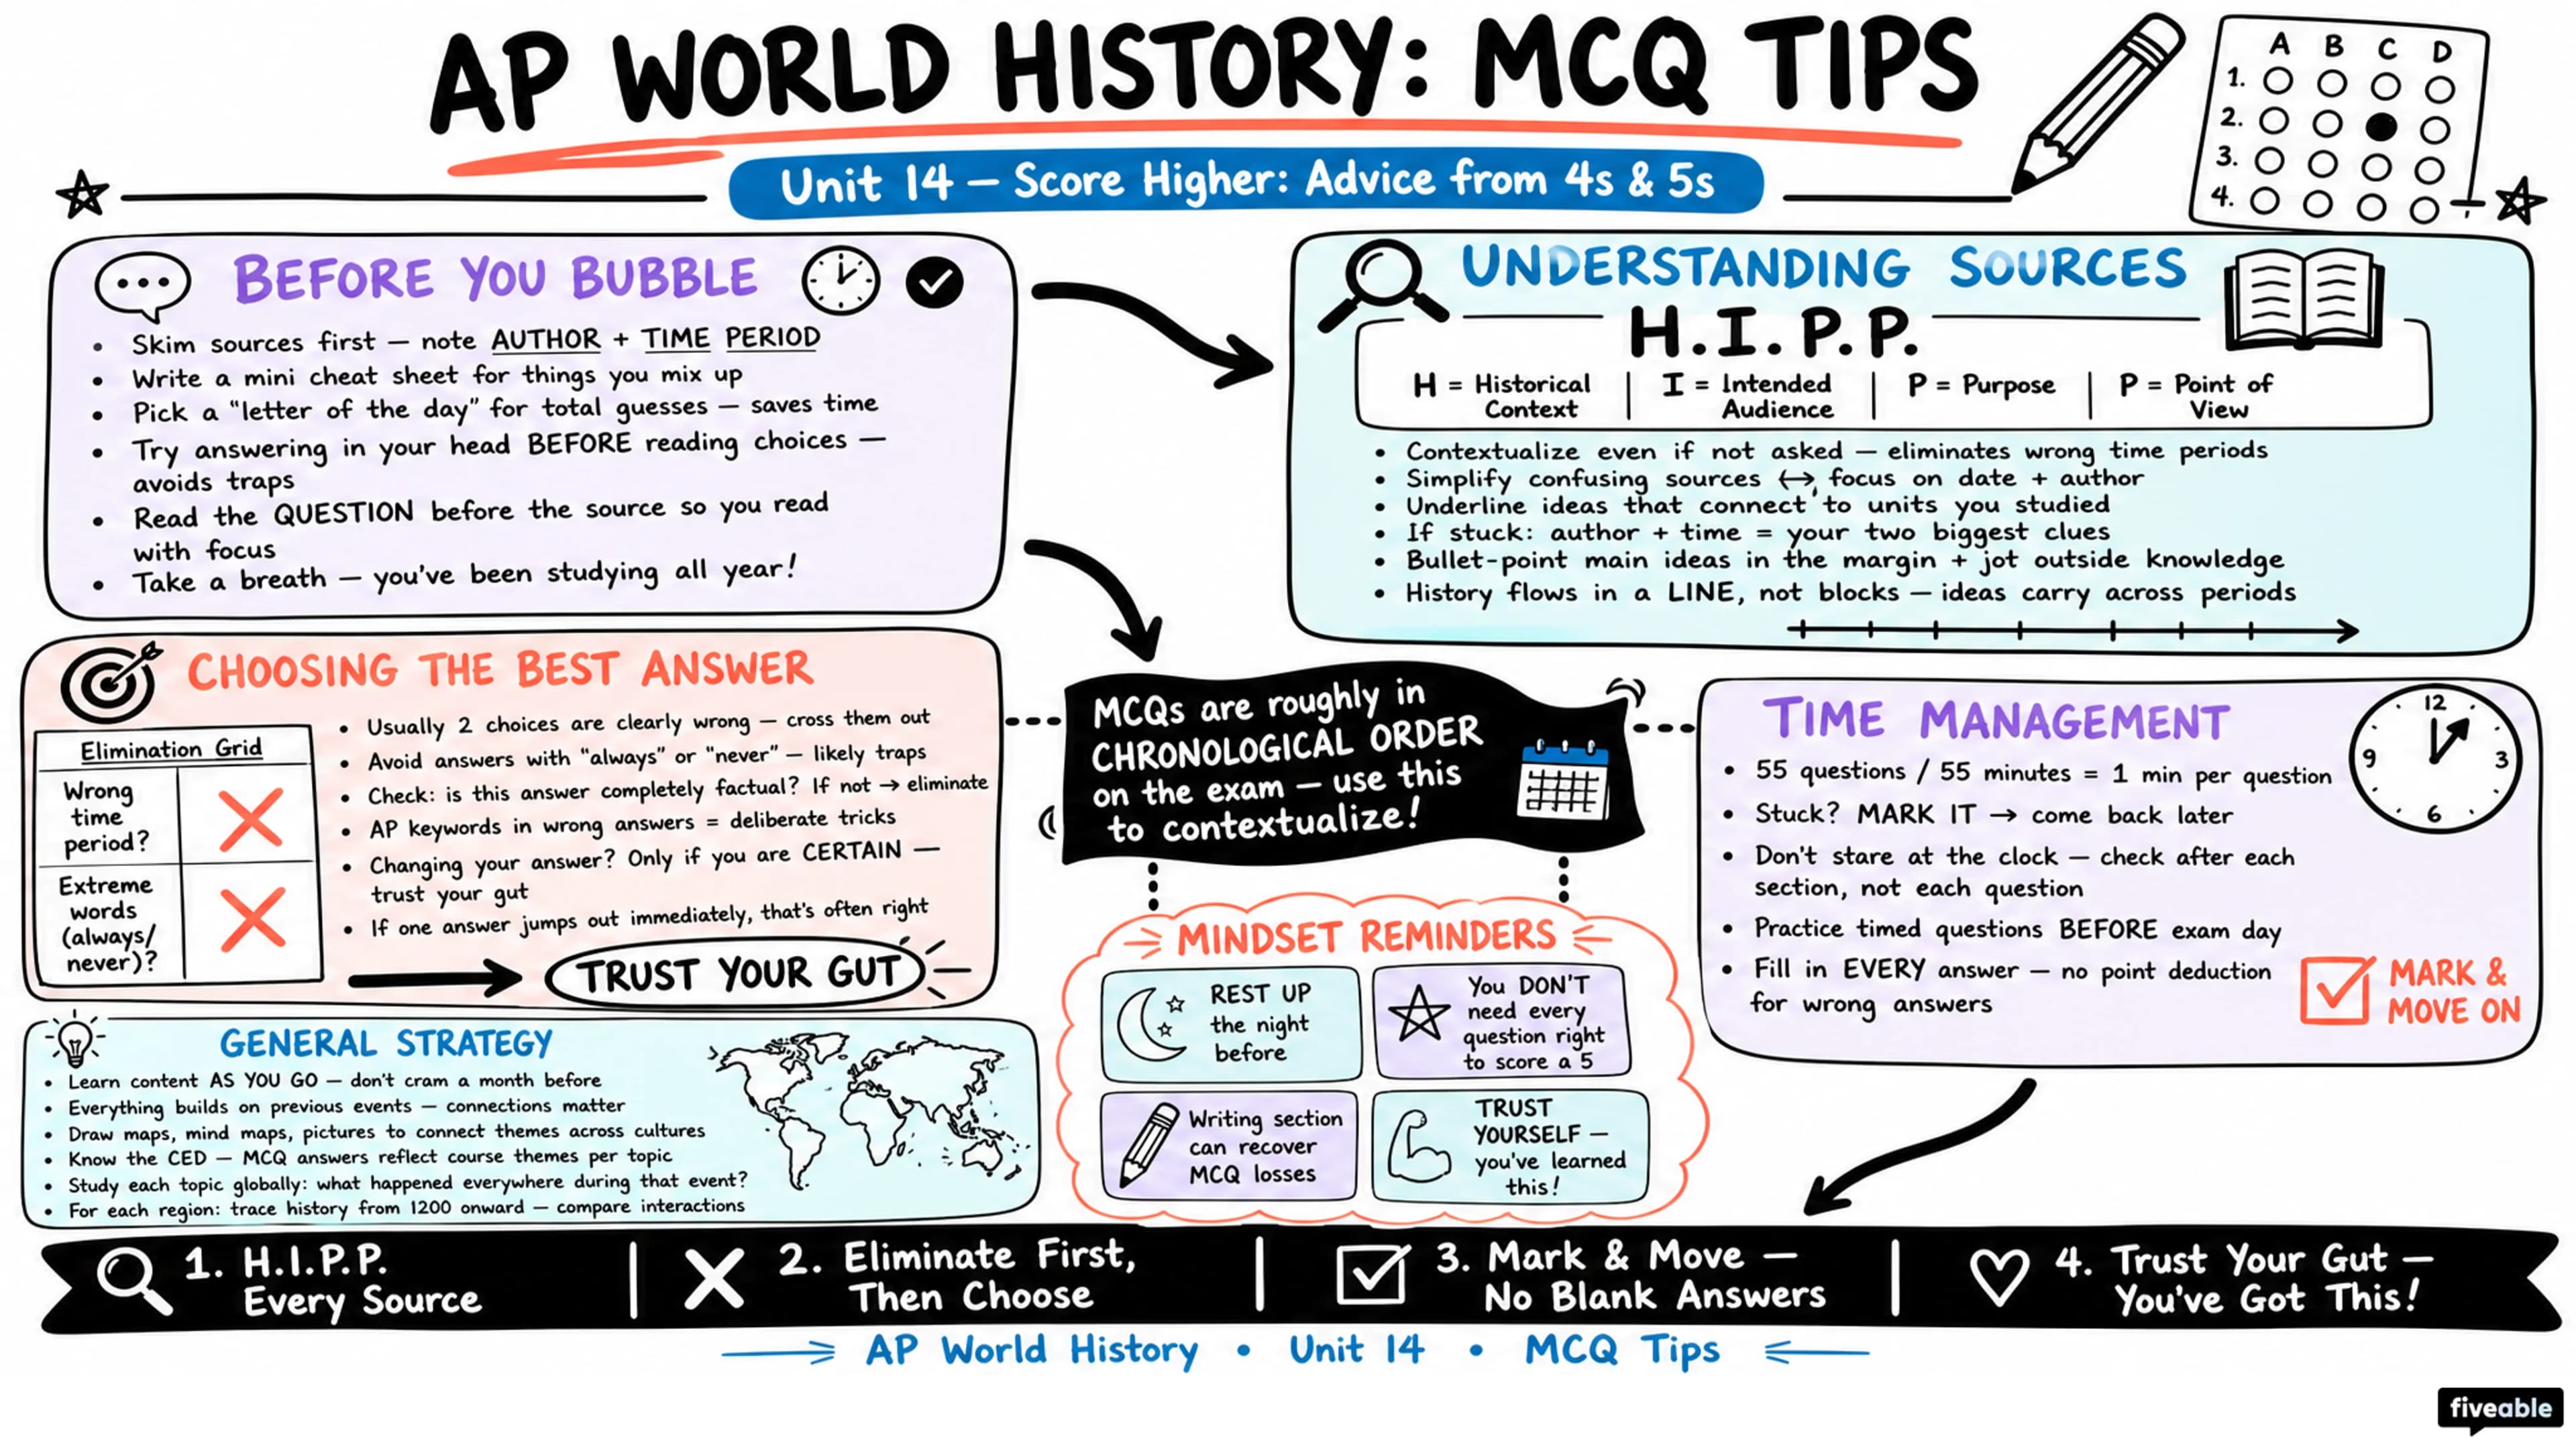 AP WORLD HISTORY: MCQ TIPS
Unit 14 – Score Higher: Advice from 4s & 5s
A B C D
1.
2.
3.
4.
BEFORE YOU BUBBLE
• Skim sources first – note AUTHOR + TIME PERIOD
• Write a mini cheat sheet for things you mix up
• Pick a "letter of the day" for total guesses – saves time
• Try answering in your head BEFORE reading choices –
avoids traps
• Read the QUESTION before the source so you read
with focus
• Take a breath – you've been studying all year!
UNDERSTANDING SOURCES
H.I.P.P.
H = Historical Context | I = Intended Audience | P = Purpose | P = Point of View
• Contextualize even if not asked – eliminates wrong time periods
• Simplify confusing sources ↔ focus on date + author
• Underline ideas that connect to units you studied
• If stuck: author + time = your two biggest clues
• Bullet-point main ideas in the margin + jot outside knowledge
• History flows in a LINE, not blocks – ideas carry across periods
CHOOSING THE BEST ANSWER
Elimination Grid
Wrong
time
period?
Extreme
words
(always/
never)?
• Usually 2 choices are clearly wrong – cross them out
• Avoid answers with "always" or "never" – likely traps
• Check: is this answer completely factual? If not → eliminate
• AP keywords in wrong answers = deliberate tricks
• Changing your answer? Only if you are CERTAIN –
trust your gut
• If one answer jumps out immediately, that's often right
TRUST YOUR GUT
MCQs are roughly in
CHRONOLOGICAL ORDER
on the exam – use this
to contextualize!
TIME MANAGEMENT
12
3
6
9
• 55 questions / 55 minutes = 1 min per question
• Stuck? MARK IT → come back later
• Don't stare at the clock – check after each
section, not each question
• Practice timed questions BEFORE exam day
• Fill in EVERY answer – no point deduction
for wrong answers
MARK &
MOVE ON
MINDSET REMINDERS
REST UP
the night
before
You DON'T
need every
question right
to score a 5
Writing section
can recover
MCQ losses
TRUST
YOURSELF –
you've learned
this!
GENERAL STRATEGY
• Learn content AS YOU GO – don't cram a month before
• Everything builds on previous events – connections matter
• Draw maps, mind maps, pictures to connect themes across cultures
• Know the CED – MCQ answers reflect course themes per topic
• Study each topic globally: what happened everywhere during that event?
• For each region: trace history from 1200 onward – compare interactions
1. H.I.P.P.
Every Source
2. Eliminate First,
Then Choose
3. Mark & Move –
No Blank Answers
4. Trust Your Gut –
You've Got This!
AP World History • Unit 14 • MCQ Tips
fiveable